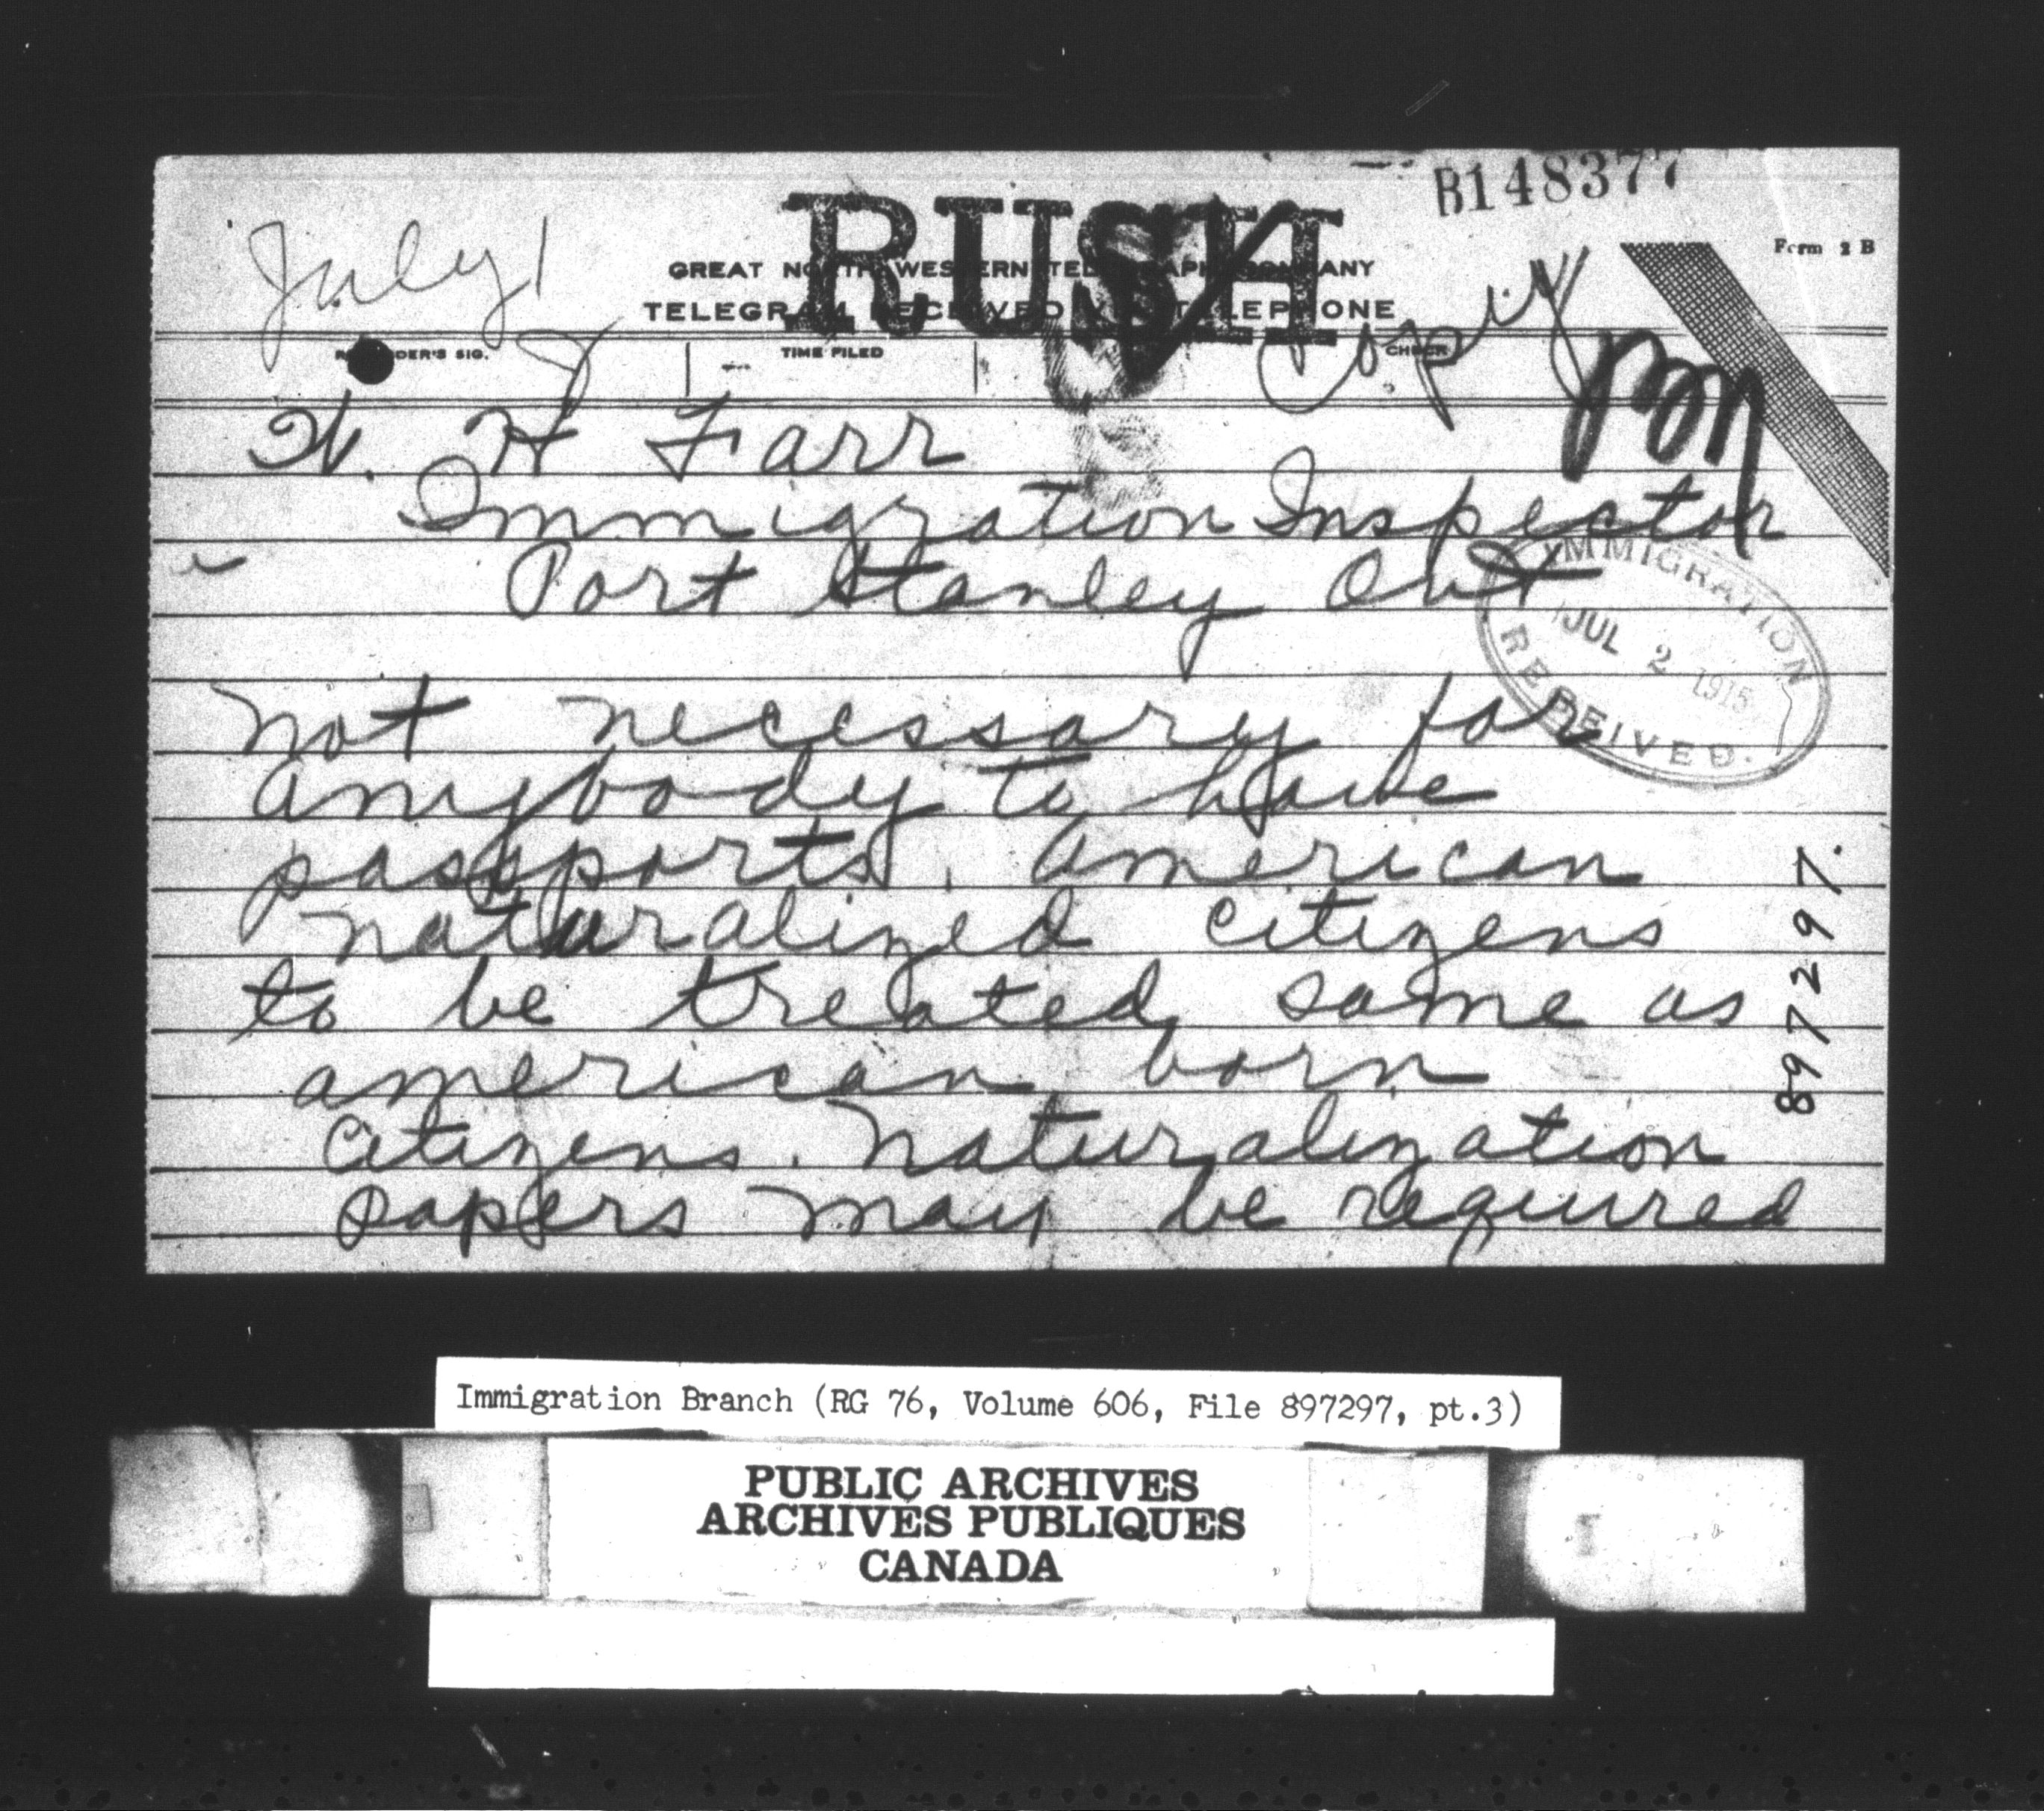 B148377
RUSH
July 1
Form 2 B
GREAT NORTH WESTERN TELEGRAPH COMPANY
TELEGRAM RECEIVED VIA TELEPHONE
Copy
RECORDER'S SIG.
TIME FILED
CHECK
W. H Farr
Immigration Inspector
Port Stanley Ont
IMMIGRATION
JUL 2 1915
RECEIVED.
not necessary for
anybody to have
passports. American
naturalized citizens
to be treated same as
american born
citizens. Naturalization
papers may be required
897297.
Immigration Branch (RG 76, Volume 606, File 897297, pt.3)
PUBLIC ARCHIVES
ARCHIVES PUBLIQUES
CANADA